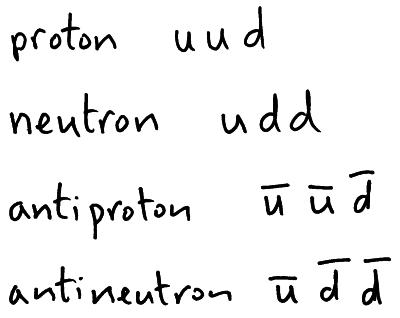 proton u u d
neutron u d d
antiproton u̅ u̅ d̅
antineutron u̅ d̅ d̅